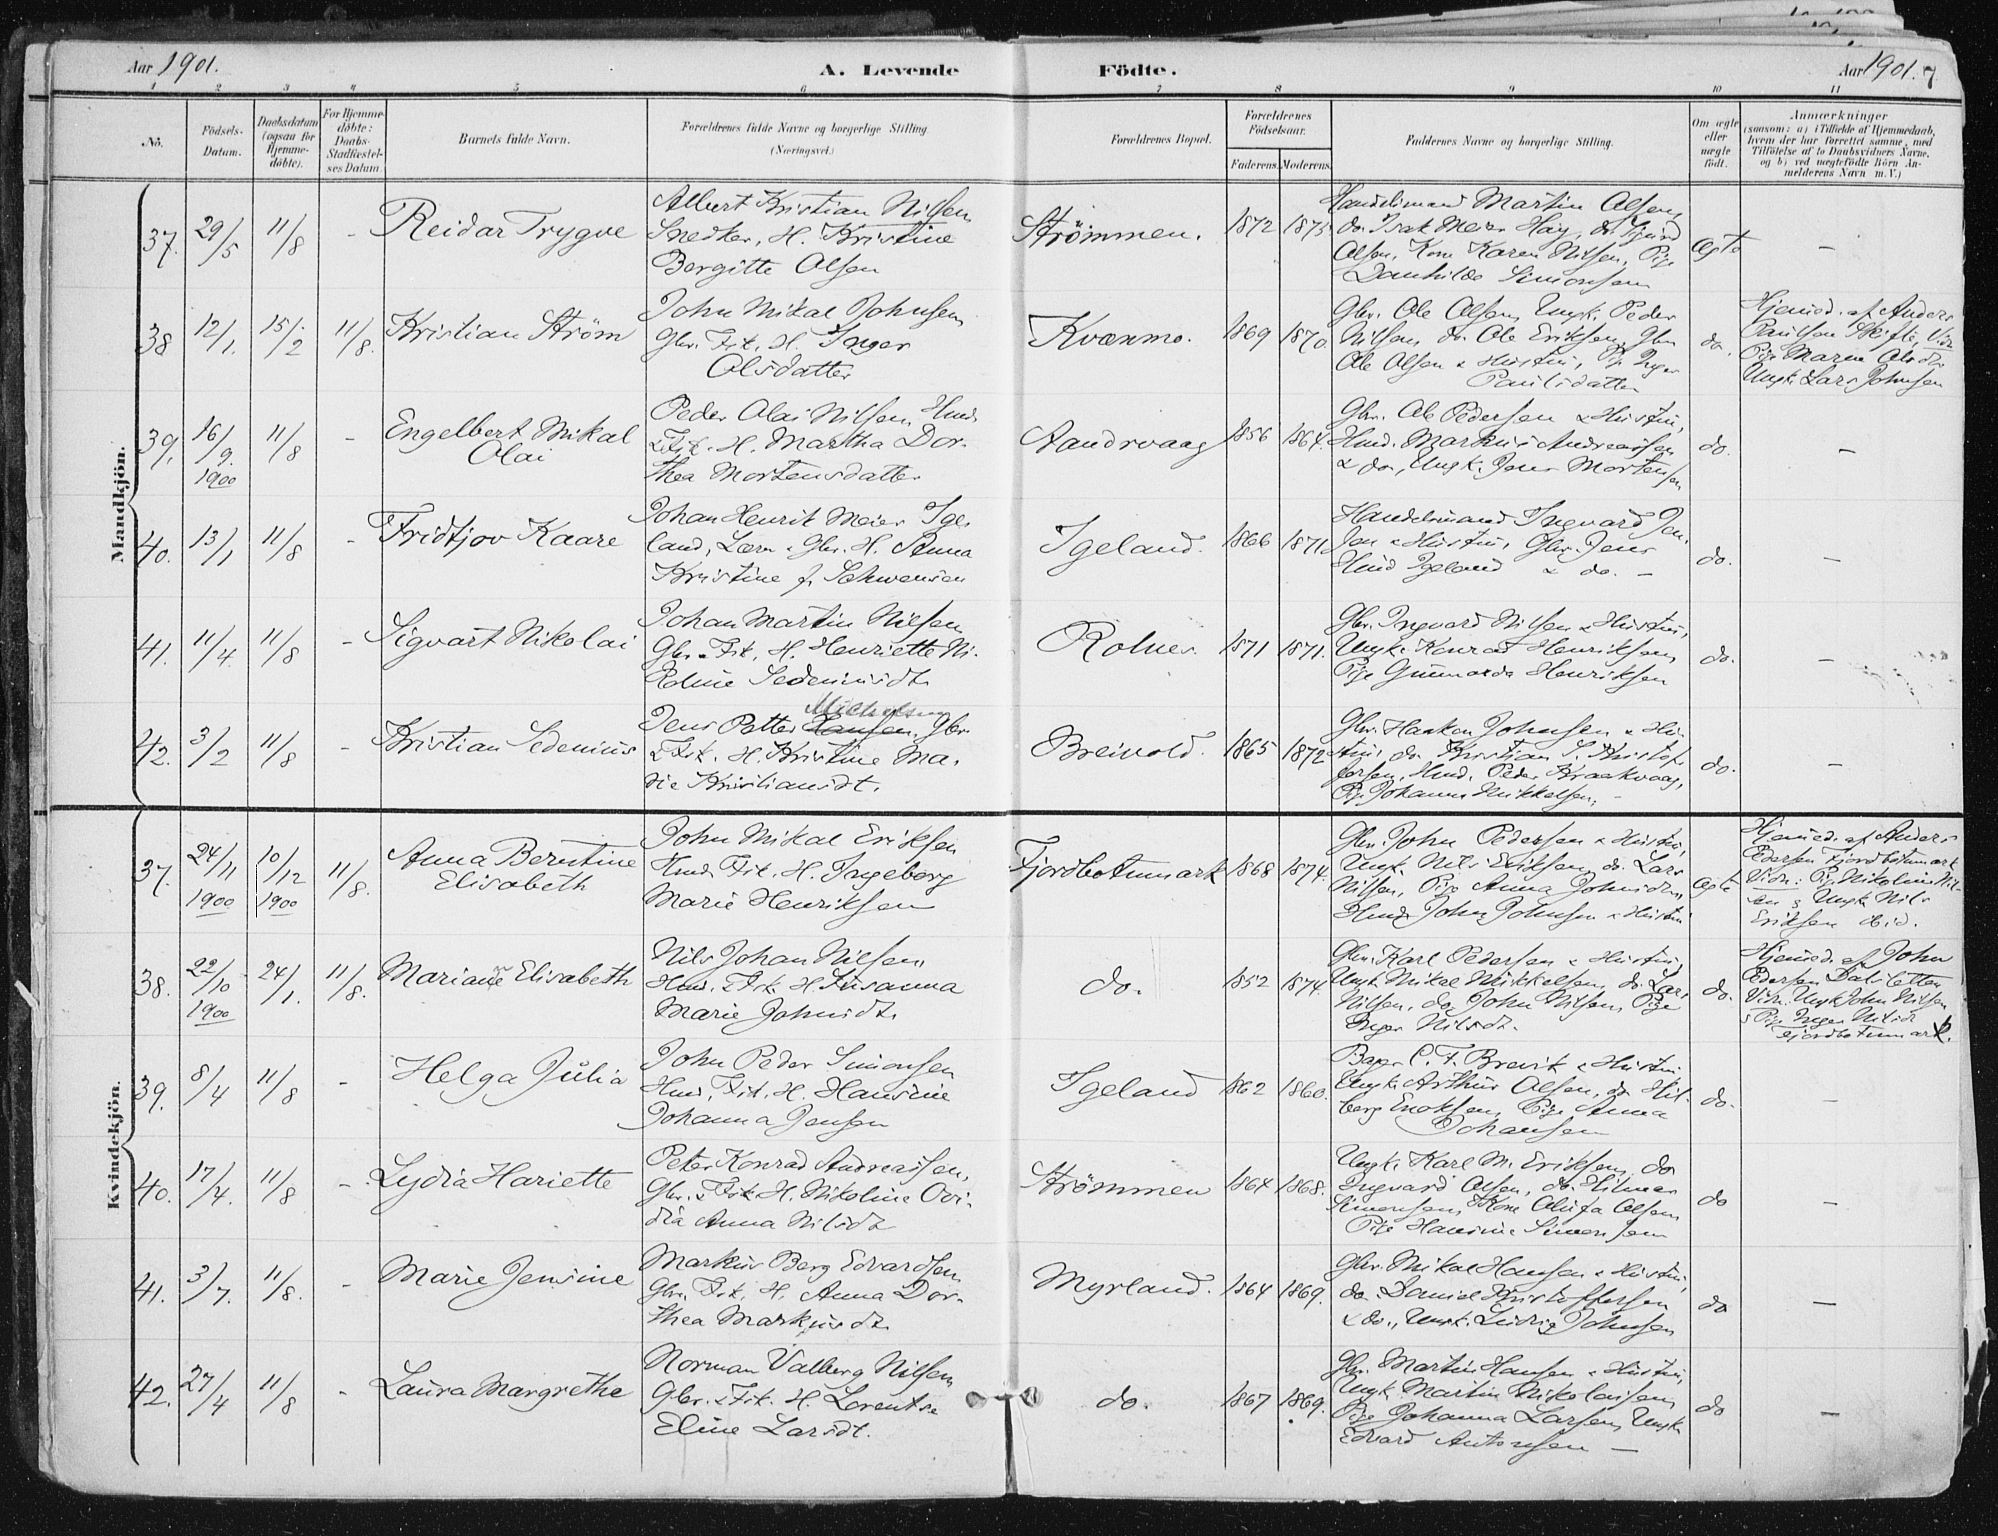 Aar 1901.
A. Levende
Födte.
Aar 1901. 7
1 2 3 4 5 6 7 8 9 10 11
No.
Födsels-
Datum.
Daabsdatum
(ogsaa for
Hjemme-
döbte).
For Hjemme-
döbte:
Daabs-
Stadfæstel-
ses Datum.
Barnets fulde Navn.
Forældrenes fulde Navne og borgerlige Stilling
(Næringsvei.)
Forældrenes Bopæl.
Forældrenes
Födselsaar.
Faderens. Moderens.
Faddernes Navne og borgerlige Stilling.
Om ægte
eller
uægte
født.
Anmærkninger
(saasom: a) i Tilfælde af Hjemmedaab,
hvem der har forrettet samme, med
Tilföielse af to Daabsvidners Navne,
og b) ved uægtefödte Börn An-
melderens Navn m. V.)
Mandkjön.
37. 29/5 11/8 - Reidar Trygve
Albert Kristian Nilsen
Snedker, H. Kristine
Bergitte Olsen
Strømmen. 1872 1875
Handelsmand Martin Olsen,
do. Isak Meier Hay, do. Sjurd
Olsen, Kone Karen Nilsen, Pige
Simonsen
Ægte -
38 12/1. 15/2 11/8. Kristian Strøm
John Mikal Johnsen
Gbr. Fisk. H. Inger
Olsdatter
Kvænmo. 1869 1870.
Gbr. Ole Olsen, Ungk. Peder
Nilsen, do. Ole Eriksen, Gbr.
Ole Olsen & Hustru, Pige Inger
Paulsdatter
do.
Hjemmed. af Anders
Paulsen Vidn.
Pige Maren Olsdtr
Ungk. Lars Johnsen
39. 16/9. 1900 11/8 - Engelbert Mikal
Olai
Peder Olai Nilsen, Hmd.
& Fisk. H. Martha Dor-
thea Mortensdatter
Aandrvaag 1856 1864.
Gbr. Ole Pedersen & Hustru,
Hmd. Markus Andreassen
& do., Ungk. Jens Mortensen
do. -
40. 13/1 11/8 - Fridtjov Kaare
Johan Henrik Meier Ige-
land, Lærer & Gbr. H. Anna
Kristine f. Schwensen
Igeland. 1866 1871.
Handelsmand Ingvard Jen-
sen & Hustru, Gbr. Jens
Hmd Igeland & do. -
do. -
41. 11/4. 11/8 - Sigvart Nikolai
Johan Martin Nilsen
Gbr. & Fisk. H. Henriette Ni-
koline Sedeniusdt.
Rolnes. 1871 1871.
Gbr. Ingvard Nilsen & Hustru,
Ungk. Konrad Henriksen
Pige Gunnarda Henriksen
do. -
42. 3/2 11/8 - Kristian Sedenius
Michelsen
Jens Petter Hansen, Gbr
& Fisk. H. Kristine Ma-
rie Kristiansdt.
Breivold. 1865 1872
Gbr. Haakon Johnsen & Hu-
stru, do. Kristian S. Kristof-
fersen, Hmd. Peder Kraakvaag,
Pige Johanna Mikkelsen. -
do. -
Kvindekjön.
37. 24/11 1900 10/12 1900 11/8. Anna Berntine
Elisabeth
John Mikal Eriksen
Hmd. Fisk. H. Ingeborg
Marie Henriksen
Fjordbotnmark 1868 1874.
Gbr. John Pedersen & Hustru,
Ungk. Nils Eriksen, do. Lars
Nilsen, Pige Anna Johnsdtr,
Hmd. John Johnsen & Hustru
ægte
Hjemmed. af Anders
Pedersen Fjordbotnmark
Vidn: Pige Nikoline Nil-
sen & Ungk. Nils
Eriksen ibid.
38. 22/10 1900 24/1. 11/8. Mariane Elisabeth
Nils Johan Nilsen
Hmd. Fisk. H. Susanna
Marie Johnsdt.
do. 1852 1874.
Gbr. Karl Pedersen & Hustru,
Ungk. Mikal Mikkelsen, do. Lars
Nilsen, do. John Nilsen, Pige
Inger Nilsdt.
do.
Hjemmed. af John
Pedersen
Vidn. Ungk. John Nilsen
& Pige Inger Nilsdt
Fjordbotnmark.
39. 8/4 11/8 - Helga Julia
John Peder Simonsen
Hmd. Fisk. H. Hansine
Johanna Jensen
Igeland 1862 1860.
Bager C. F. Brevik & Hustru
Ungk. Arthur Olsen, do. Hil-
berg Enoksen, Pige Anna
Johansen
do. -
40. 17/4. 11/8 - Lydia Hariette
Peter Konrad Andreassen,
Gbr. & Fisk. H. Nikoline Ovi-
dia Anna Nilsdt
Strømmen 1864 1868.
Ungk. Karl M. Eriksen, do
Ingvard Olsen, do. Hilmar
Simonsen, Kone Olufa Olsen
Pige Hansine Simonsen
do -
41. 3/7. 11/8. - Marie Jensine
Markus Berg Edvardsen
Gbr. Fisk. H. Anna Dor-
thea Markusdt.
Myrland. 1864 1869.
Gbr. Mikal Hansen & Hustru,
do. Daniel Kristoffersen
& do., Ungk. Ludvig Johnsen
do -
42. 27/4 11/8 - Laura Margrethe
Norman Valberg Nilsen
Gbr. & Fisk. H. Lorentse
Eline Larsdt.
do. 1867 1869.
Gbr. Martin Hansen & Hustru,
Ungk. Martin Nikolaisen,
Pige Johanna Larsen, Ungk.
Edvard Antonsen -
do -